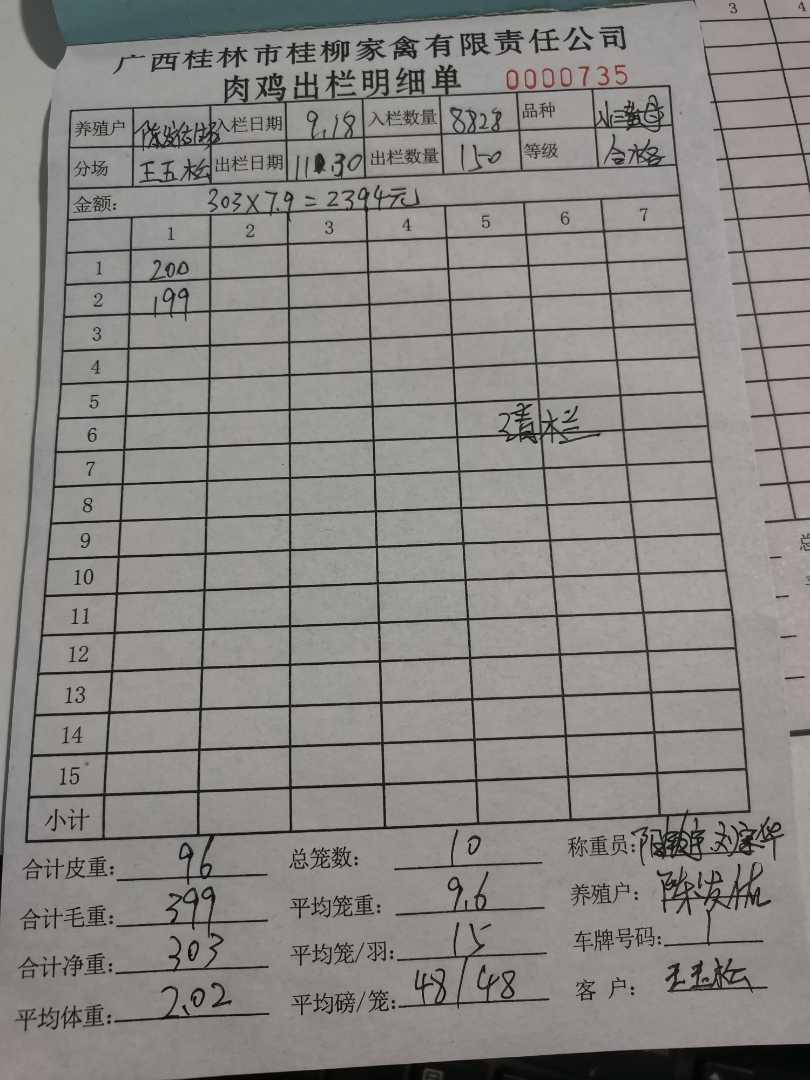 广西桂林市桂柳家禽有限责任公司
肉鸡出栏明细单 0000735
养殖户 入栏日期 9.18 入栏数量 8828 品种
分场 王玉松 出栏日期 11.30 出栏数量 150 等级 合格
金额: 303×7.9=2394元
1 2 3 4 5 6 7
1 200
2 199
3
4
5
6 清栏
7
8
9
10
11
12
13
14
15
小计
合计皮重: 96 总笼数: 10 称重员:
合计毛重: 399 平均笼重: 9.6 养殖户: 陈发佑
合计净重: 303 平均笼/羽: 15 车牌号码: /
平均体重: 2.02 平均磅/笼: 48/48 客户: 王玉松
3 4